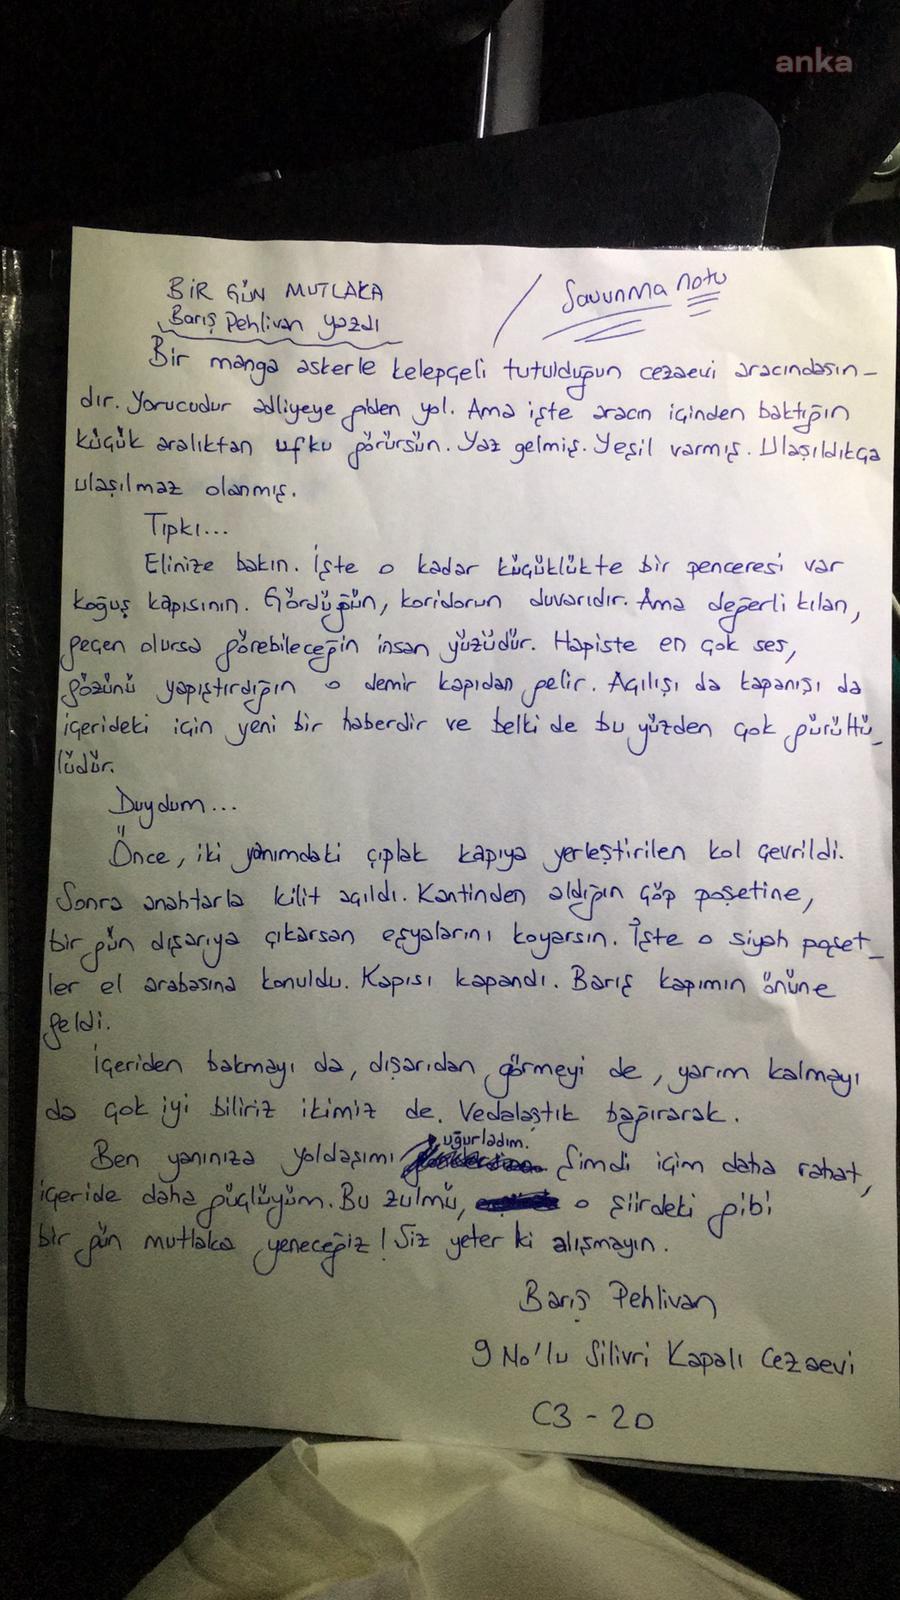 anka
BİR GÜN MUTLAKA / Savunma notu
Barış Pehlivan yazdı
Bir manga askerle kelepçeli tutulduğun cezaevi aracındasın-
dır. Yorucudur adliyeye giden yol. Ama işte aracın içinden baktığın
küçük aralıktan ufku görürsün. Yaz gelmiş. Yeşil varmış. Ulaşıldıkça
ulaşılmaz olanmış.
Tıpkı...
Elinize bakın. İşte o kadar küçüklükte bir penceresi var
koğuş kapısının. Gördüğün, koridorun duvarıdır. Ama değerli kılan,
geçen olursa görebileceğin insan yüzüdür. Hapiste en çok ses,
gözünü yapıştırdığın o demir kapıdan gelir. Açılışı da kapanışı da
içerideki için yeni bir haberdir ve belki de bu yüzden çok gürültü_
lüdür.
Duydum...
Önce, iki yanımdaki çıplak kapıya yerleştirilen kol çevrildi.
Sonra anahtarla kilit açıldı. Kantinden aldığın çöp poşetine,
bir gün dışarıya çıkarsan eşyalarını koyarsın. İşte o siyah poşet_
ler el arabasına konuldu. Kapısı kapandı. Barış kapımın önüne
geldi.
İçeriden bakmayı da, dışarıdan görmeyi de, yarım kalmayı
da çok iyi biliriz ikimiz de. Vedalaştık bağırarak.
Ben yanınıza yoldaşımı uğurladım. Şimdi içim daha rahat,
içeride daha güçlüyüm. Bu zulmü, o şiirdeki gibi
bir gün mutlaka yeneceğiz! Siz yeter ki alışmayın.
Barış Pehlivan
9 No'lu Silivri Kapalı Cezaevi
C3 - 20